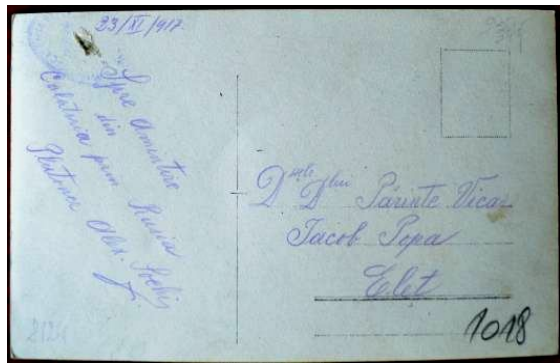 23/XI/917.
Spre amintire
din
Calatoria prin Rusia
Plutoner Alex.
Dsale Dlui Părinte Vicar
Iacob Popa
1018